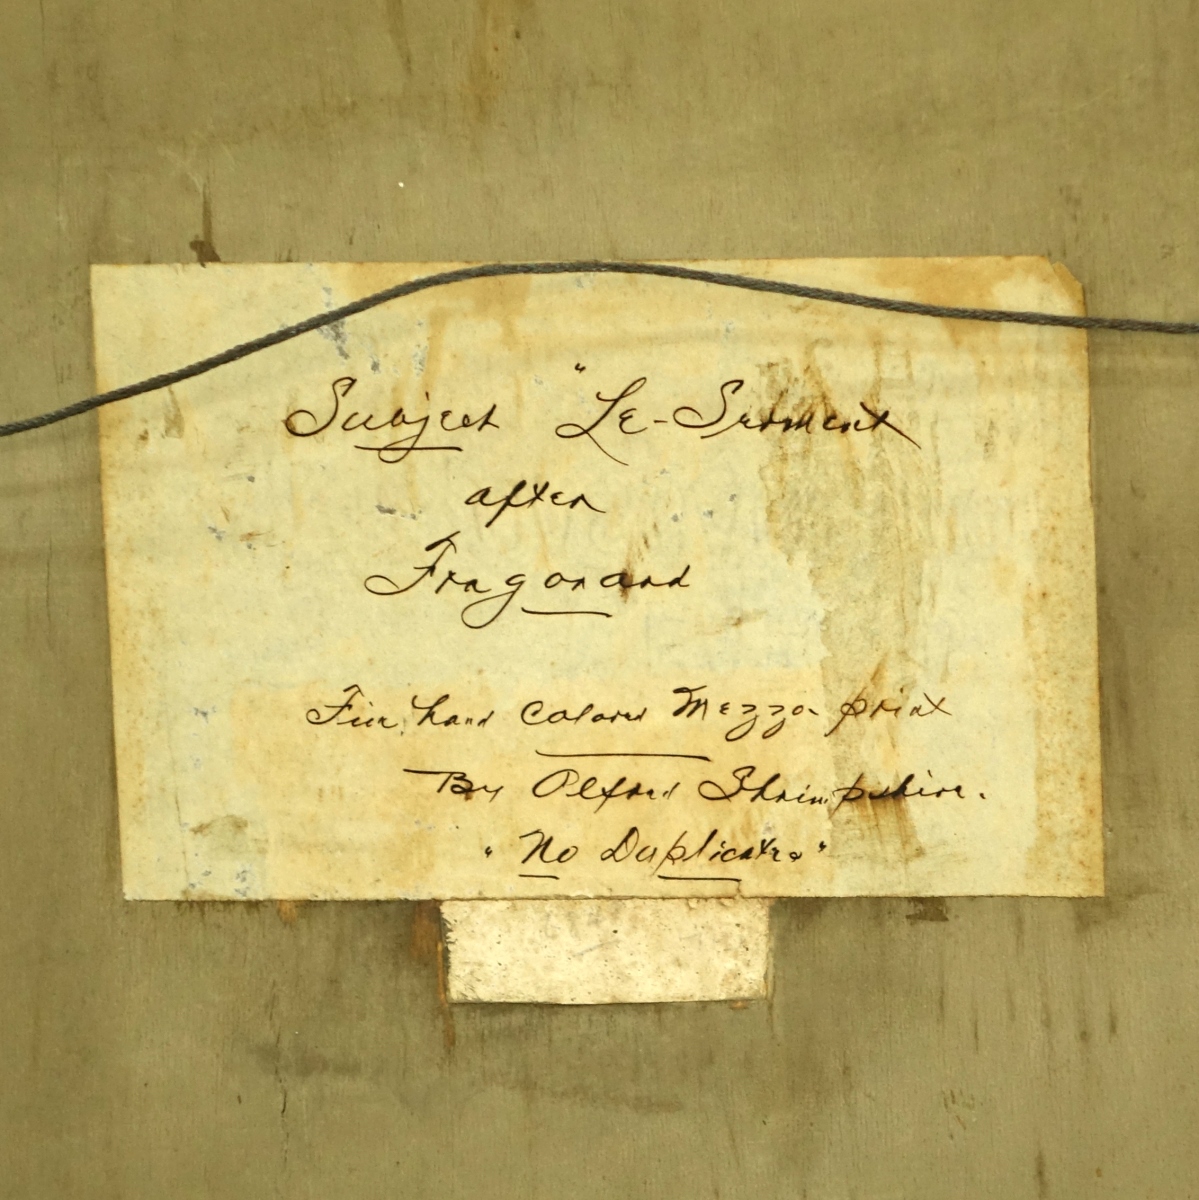 Subject "Le-Serment
after
Fragonard
Fine hand colored Mezzo print
By Alfred Skrimpshire.
"No Duplicates"